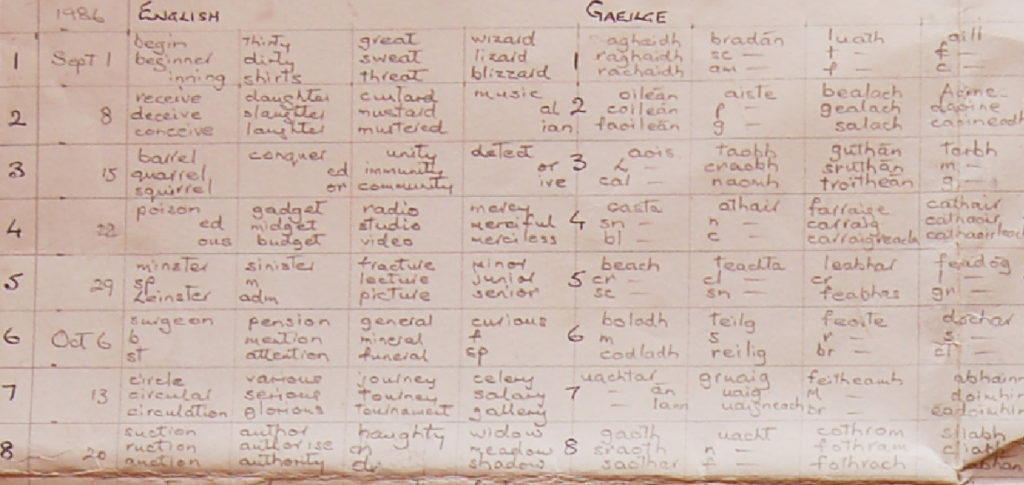 1986 ENGLISH GAEILGE
begin thirty great wizard aghaidh bradán luath aill
1 Sept 1 beginner dirty sweat lizard 1 raghaidh sc — t — f —
inning shirts threat blizzard rachaidh am — f — c —
receive daughter custard music oileán aiste bealach Aoine
2 8 deceive slaughter mustard al 2 coileán p — gealach daoine
conceive laughter mustered ian faoileán g — salach caoineadh
barrel conquer unity detect aois taobh guthán tarbh
3 15 quarrel ed immunity or 3 L — craobh sruthán m —
squirrel or community ive cal — naomh troitheán g —
poison gadget radio mercy casta athair farraige cathair
4 22 ed midget studio merciful 4 sn — n — carraig cathaoir
ous budget video merciless bl — c — carraigreach cathaoirleach
minster sinister fracture minor beach teachta leabhar feadóg
5 29 sp m lecture junior 5 cr — cl — cr — l —
Leinster adm picture senior sc — sn — feabhas gr —
surgeon pension general curious boladh teilg feoite dochar
6 Oct 6 b mention mineral f 6 m — s — r — s —
st attention funeral sp codladh reilig br — cl —
circle various journey celery uachtar gruaig feitheamh abhainn
7 13 circular serious tourney salary 7 — án uaig M — doimhin
circulation glorious tournament gallery — lann uaigneach br — eadoimhin
suction author haughty widow gaoth uacht cothrom sliabh
8 20 ruction authorise n meadow 8 sraoth n — fothram cliabh
auction authority dr shadow saothar f — fothrach